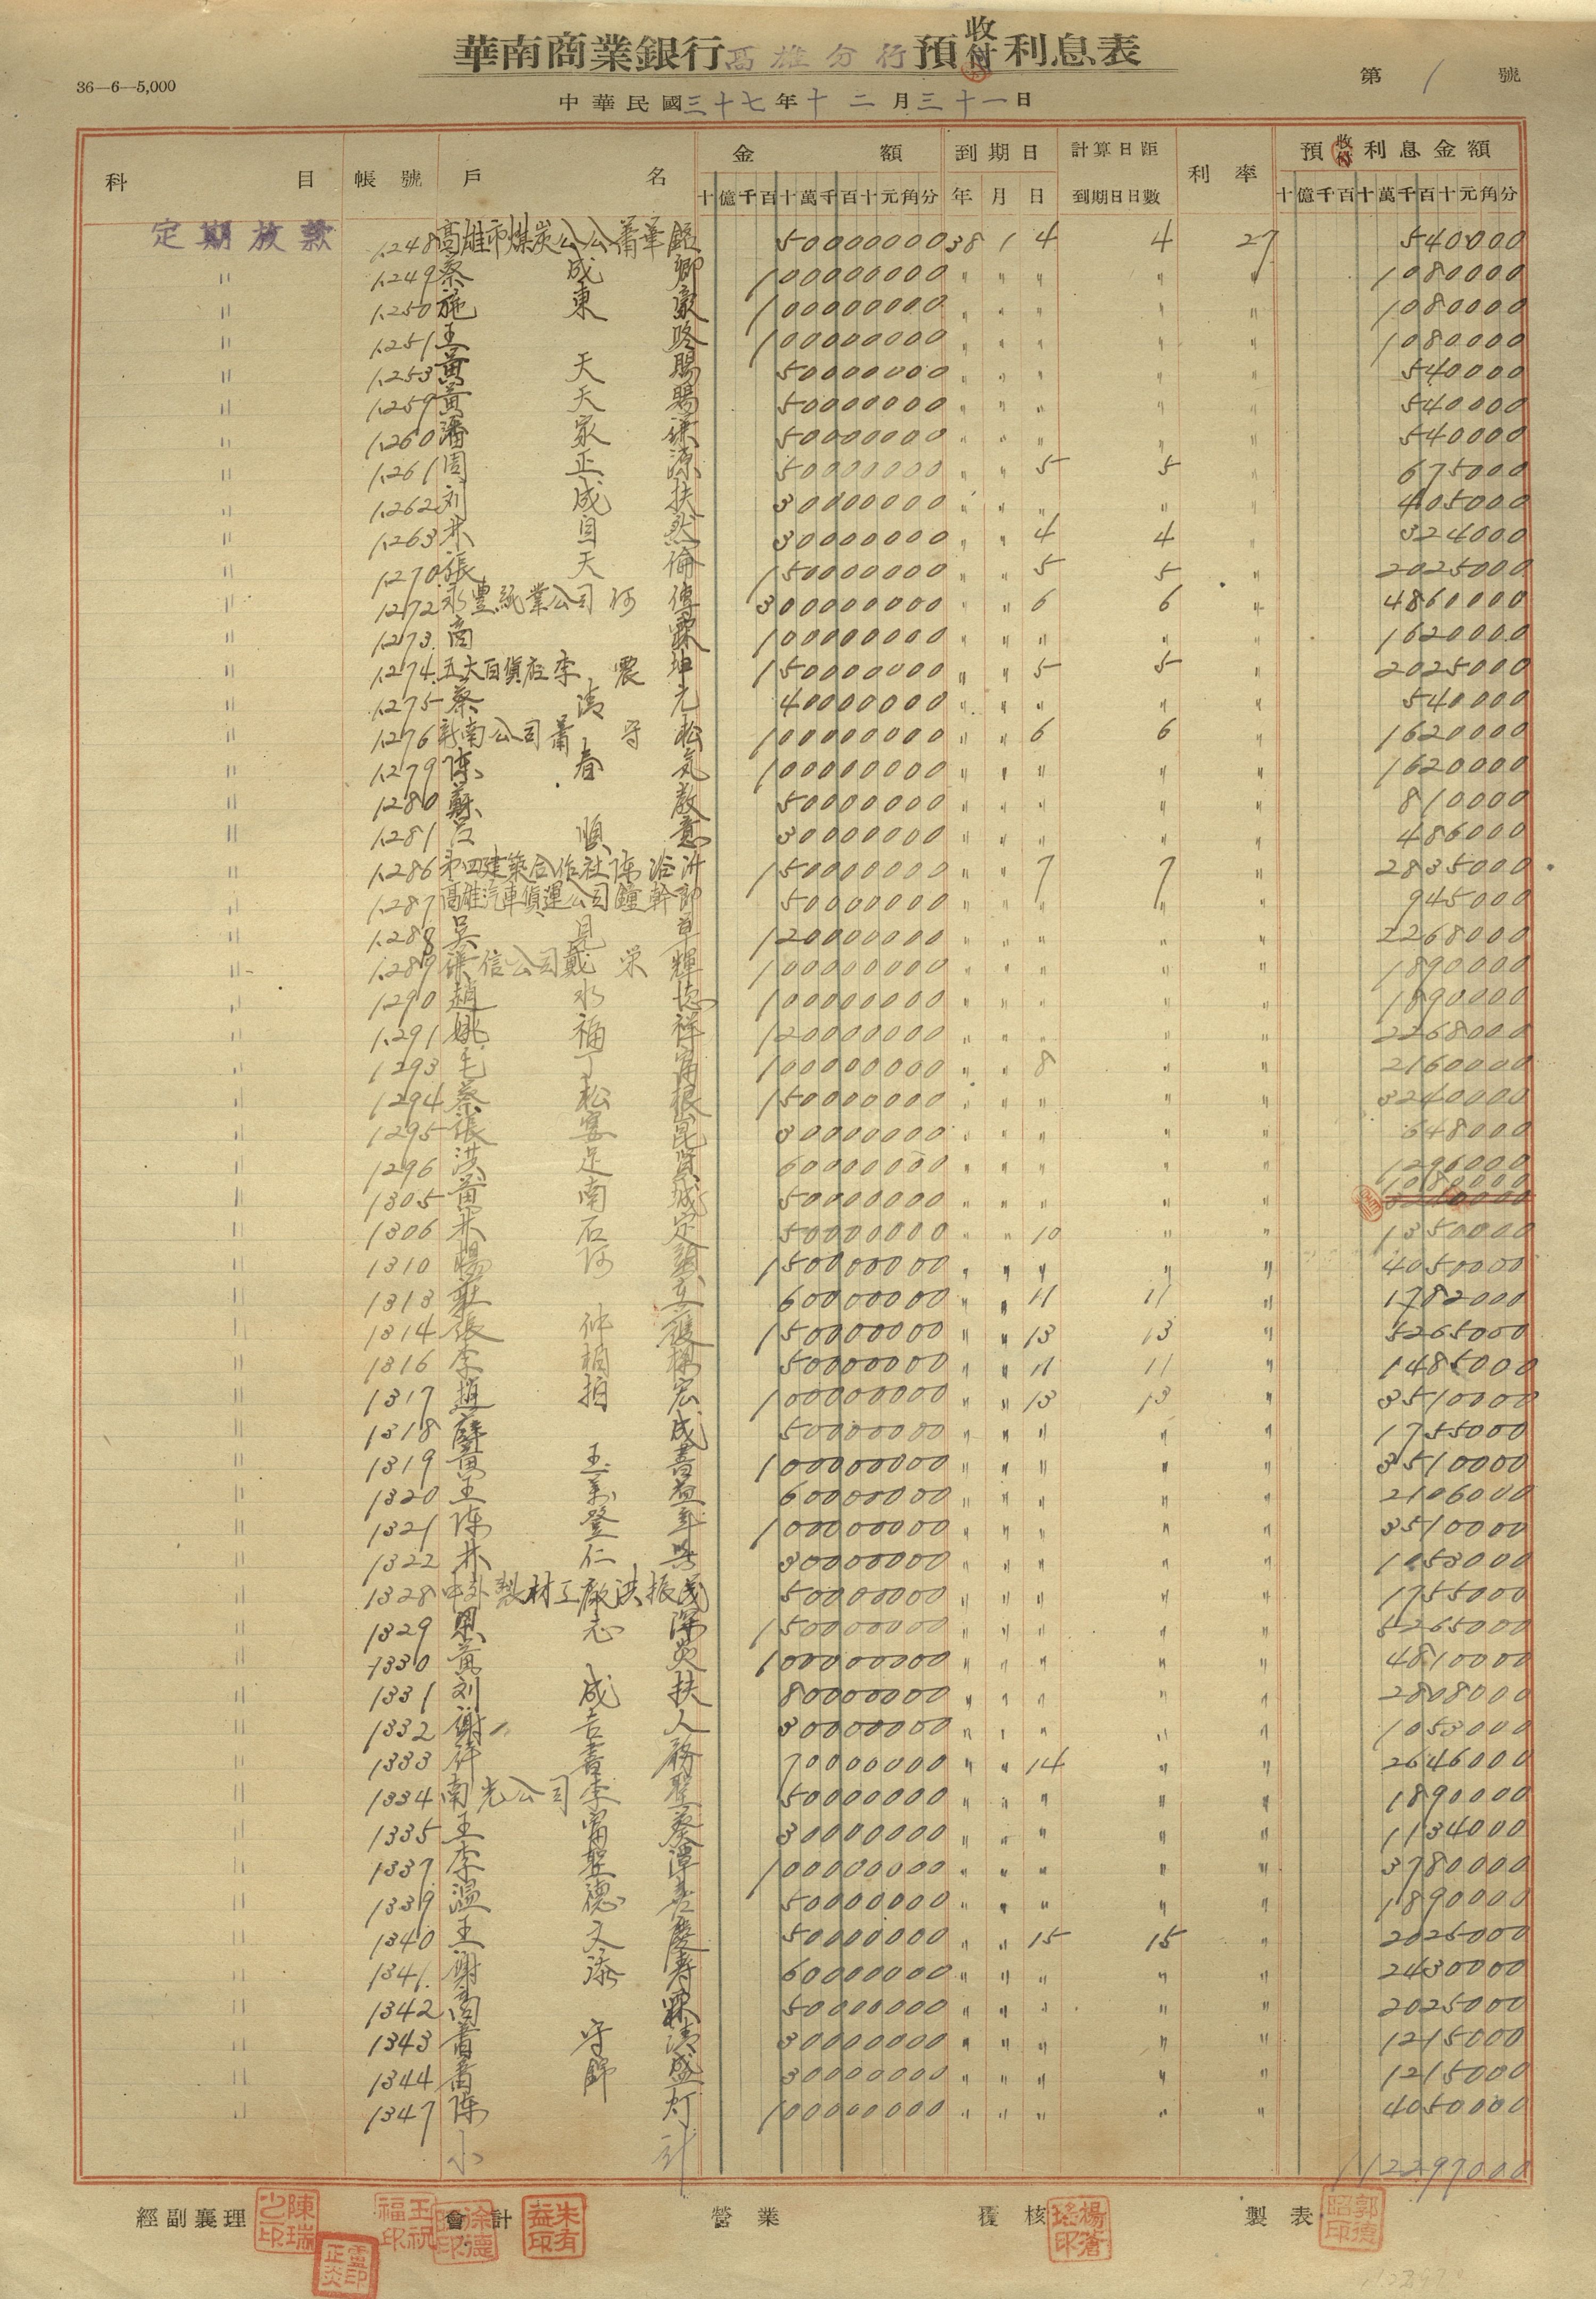 華南商業銀行高雄分行預收付利息表
36—6—5,000
第 1 號
中華民國三十七年十二月三十一日
科目 帳號 戶名 金額 到期日 計算日距 利率 預收付利息金額
十億千百十萬千百十元角分 年 月 日 到期日日數 十億千百十萬千百十元角分
定期放款 1.248 高雄市煤炭公公蕭華銘 50000000 38 1 4 4 27 540000
〃 1.249 蔡成卿 100000000 〃 〃 〃 〃 〃 1080000
〃 1.250 施東豪 100000000 〃 〃 〃 〃 〃 1080000
〃 1.251 王 100000000 〃 〃 〃 〃 〃 1080000
〃 1.253 黃天賜 50000000 〃 〃 〃 〃 〃 540000
〃 1.259 黃天賜 50000000 〃 〃 〃 〃 〃 540000
〃 1.260 潘家 50000000 〃 〃 〃 〃 〃 540000
〃 1.261 周正源 50000000 〃 〃 5 5 〃 675000
〃 1.262 刘成扶 30000000 〃 〃 〃 〃 〃 405000
〃 1.263 林自然 30000000 〃 〃 4 4 〃 324000
〃 1.270 張天倫 150000000 〃 〃 5 5 〃 2025000
〃 1.272 永豐 業公司 何傳 300000000 〃 〃 6 6 〃 4860000
〃 1.273 商霖 100000000 〃 〃 〃 〃 〃 1620000
〃 1.274 五大百貨店李震坤 150000000 〃 〃 5 5 〃 2025000
〃 1.275 蔡清光 40000000 〃 〃 〃 〃 〃 540000
〃 1.276 新南公司蕭守松 100000000 〃 〃 6 6 〃 1620000
〃 1.279 陈春気 100000000 〃 〃 〃 〃 〃 1620000
〃 1.280 蘇啟 50000000 〃 〃 〃 〃 〃 810000
〃 1.281 江順意 30000000 〃 〃 〃 〃 〃 486000
〃 1.286 第四建築合作社陈 150000000 〃 〃 7 7 〃 2835000
〃 1.287 高雄汽車貨運公司鐘幹郎 50000000 〃 〃 〃 〃 〃 945000
〃 1.288 吳見草 120000000 〃 〃 〃 〃 〃 2268000
〃 1.289 信公司戴栄輝 100000000 〃 〃 〃 〃 〃 1890000
〃 1290 趙水德 100000000 〃 〃 〃 〃 1890000
〃 1.291 姚福祥 120000000 〃 〃 〃 〃 〃 2268000
〃 1293 毛丁 100000000 〃 〃 8 〃 〃 2160000
〃 1294 蔡松根 150000000 〃 〃 〃 〃 〃 3240000
〃 1295 張宴昆 30000000 〃 〃 〃 〃 〃 648000
〃 1296 洪足賢 60000000 〃 〃 〃 〃 〃 1296000
〃 1305 黃南城 50000000 〃 〃 〃 〃 〃 1080000
〃 1306 林石定 50000000 〃 〃 10 〃 〃 1350000
〃 1310 楊河 150000000 〃 〃 〃 〃 〃 4050000
〃 1313 莊 60000000 〃 〃 11 11 〃 1782000
〃 1314 張仲護 150000000 〃 〃 13 13 〃 5265000
〃 1316 李楊 50000000 〃 〃 11 11 〃 1485000
〃 1317 趙拍宏 100000000 〃 〃 13 13 〃 3510000
〃 1318 薛成 50000000 〃 〃 〃 〃 〃 1755000
〃 1319 黃玉書 100000000 〃 〃 〃 〃 〃 3510000
〃 1320 王益 60000000 〃 〃 〃 〃 〃 2106000
〃 1321 陈登年 100000000 〃 〃 〃 〃 〃 3510000
〃 1322 林仁 30000000 〃 〃 〃 〃 〃 1053000
〃 1328 中外製材工廠洪振茂 50000000 〃 〃 〃 〃 〃 1755000
〃 1329 志深 150000000 〃 〃 〃 〃 〃 5265000
〃 1330 黃炎 100000000 〃 〃 〃 〃 〃 4810000
〃 1331 刘成扶 80000000 〃 〃 〃 〃 〃 2808000
〃 1332 謝吉人 30000000 〃 〃 〃 〃 〃 1053000
〃 1333 許書務 70000000 〃 〃 14 〃 〃 2646000
〃 1334 南光公司李聖 50000000 〃 〃 〃 〃 〃 1890000
〃 1335 王葵 30000000 〃 〃 〃 〃 〃 1134000
〃 1337 李聖潭 100000000 〃 〃 〃 〃 〃 3780000
〃 1339 溫德喜 50000000 〃 〃 〃 〃 〃 1890000
〃 1340 王文慶 50000000 〃 〃 15 15 〃 2025000
〃 1341 謝添壽 60000000 〃 〃 〃 〃 〃 2430000
〃 1342 商霖 50000000 〃 〃 〃 〃 〃 2025000
〃 1343 蕭守清 30000000 〃 〃 〃 〃 〃 1215000
〃 1344 黃錦盛 30000000 〃 〃 〃 〃 〃 1215000
〃 1347 陈灯 100000000 〃 〃 〃 〃 〃 4050000
小計 112297000
經副襄理 會計 營業 覆核 製表